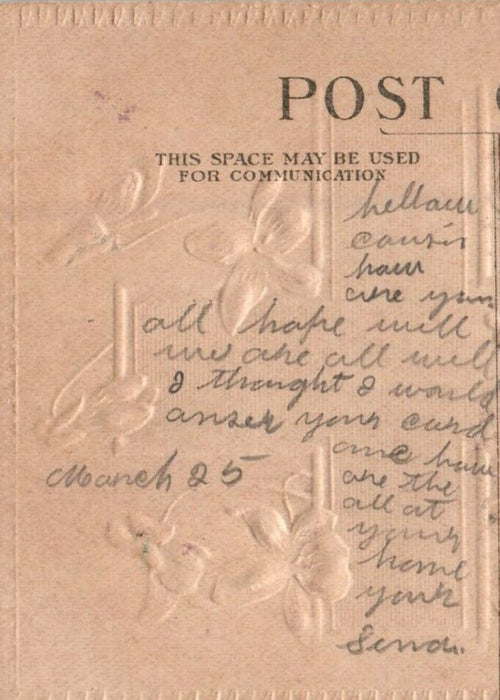 POST
THIS SPACE MAY BE USED
FOR COMMUNICATION
hellow
cousin
how
are you
all hope will
we are all well
I thought I would
anser your card
and how
are the
all at
your
home
your
March 25